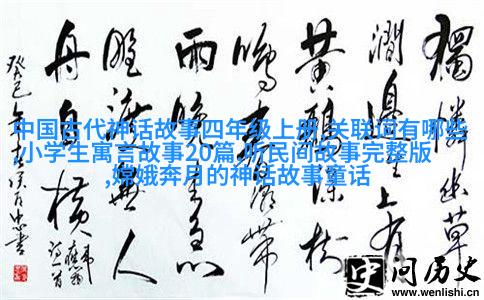 中国古代神话故事四年级上册,关联词有哪些
小学生寓言故事20篇,听民间故事完整版
,嫦娥奔月的神话故事童话
獨憐幽草
澗邊生上有
黃鸝深樹
鳴春潮帶
雨晚來急
野渡無人
舟自橫
史问历史
www.wenlishi.cn